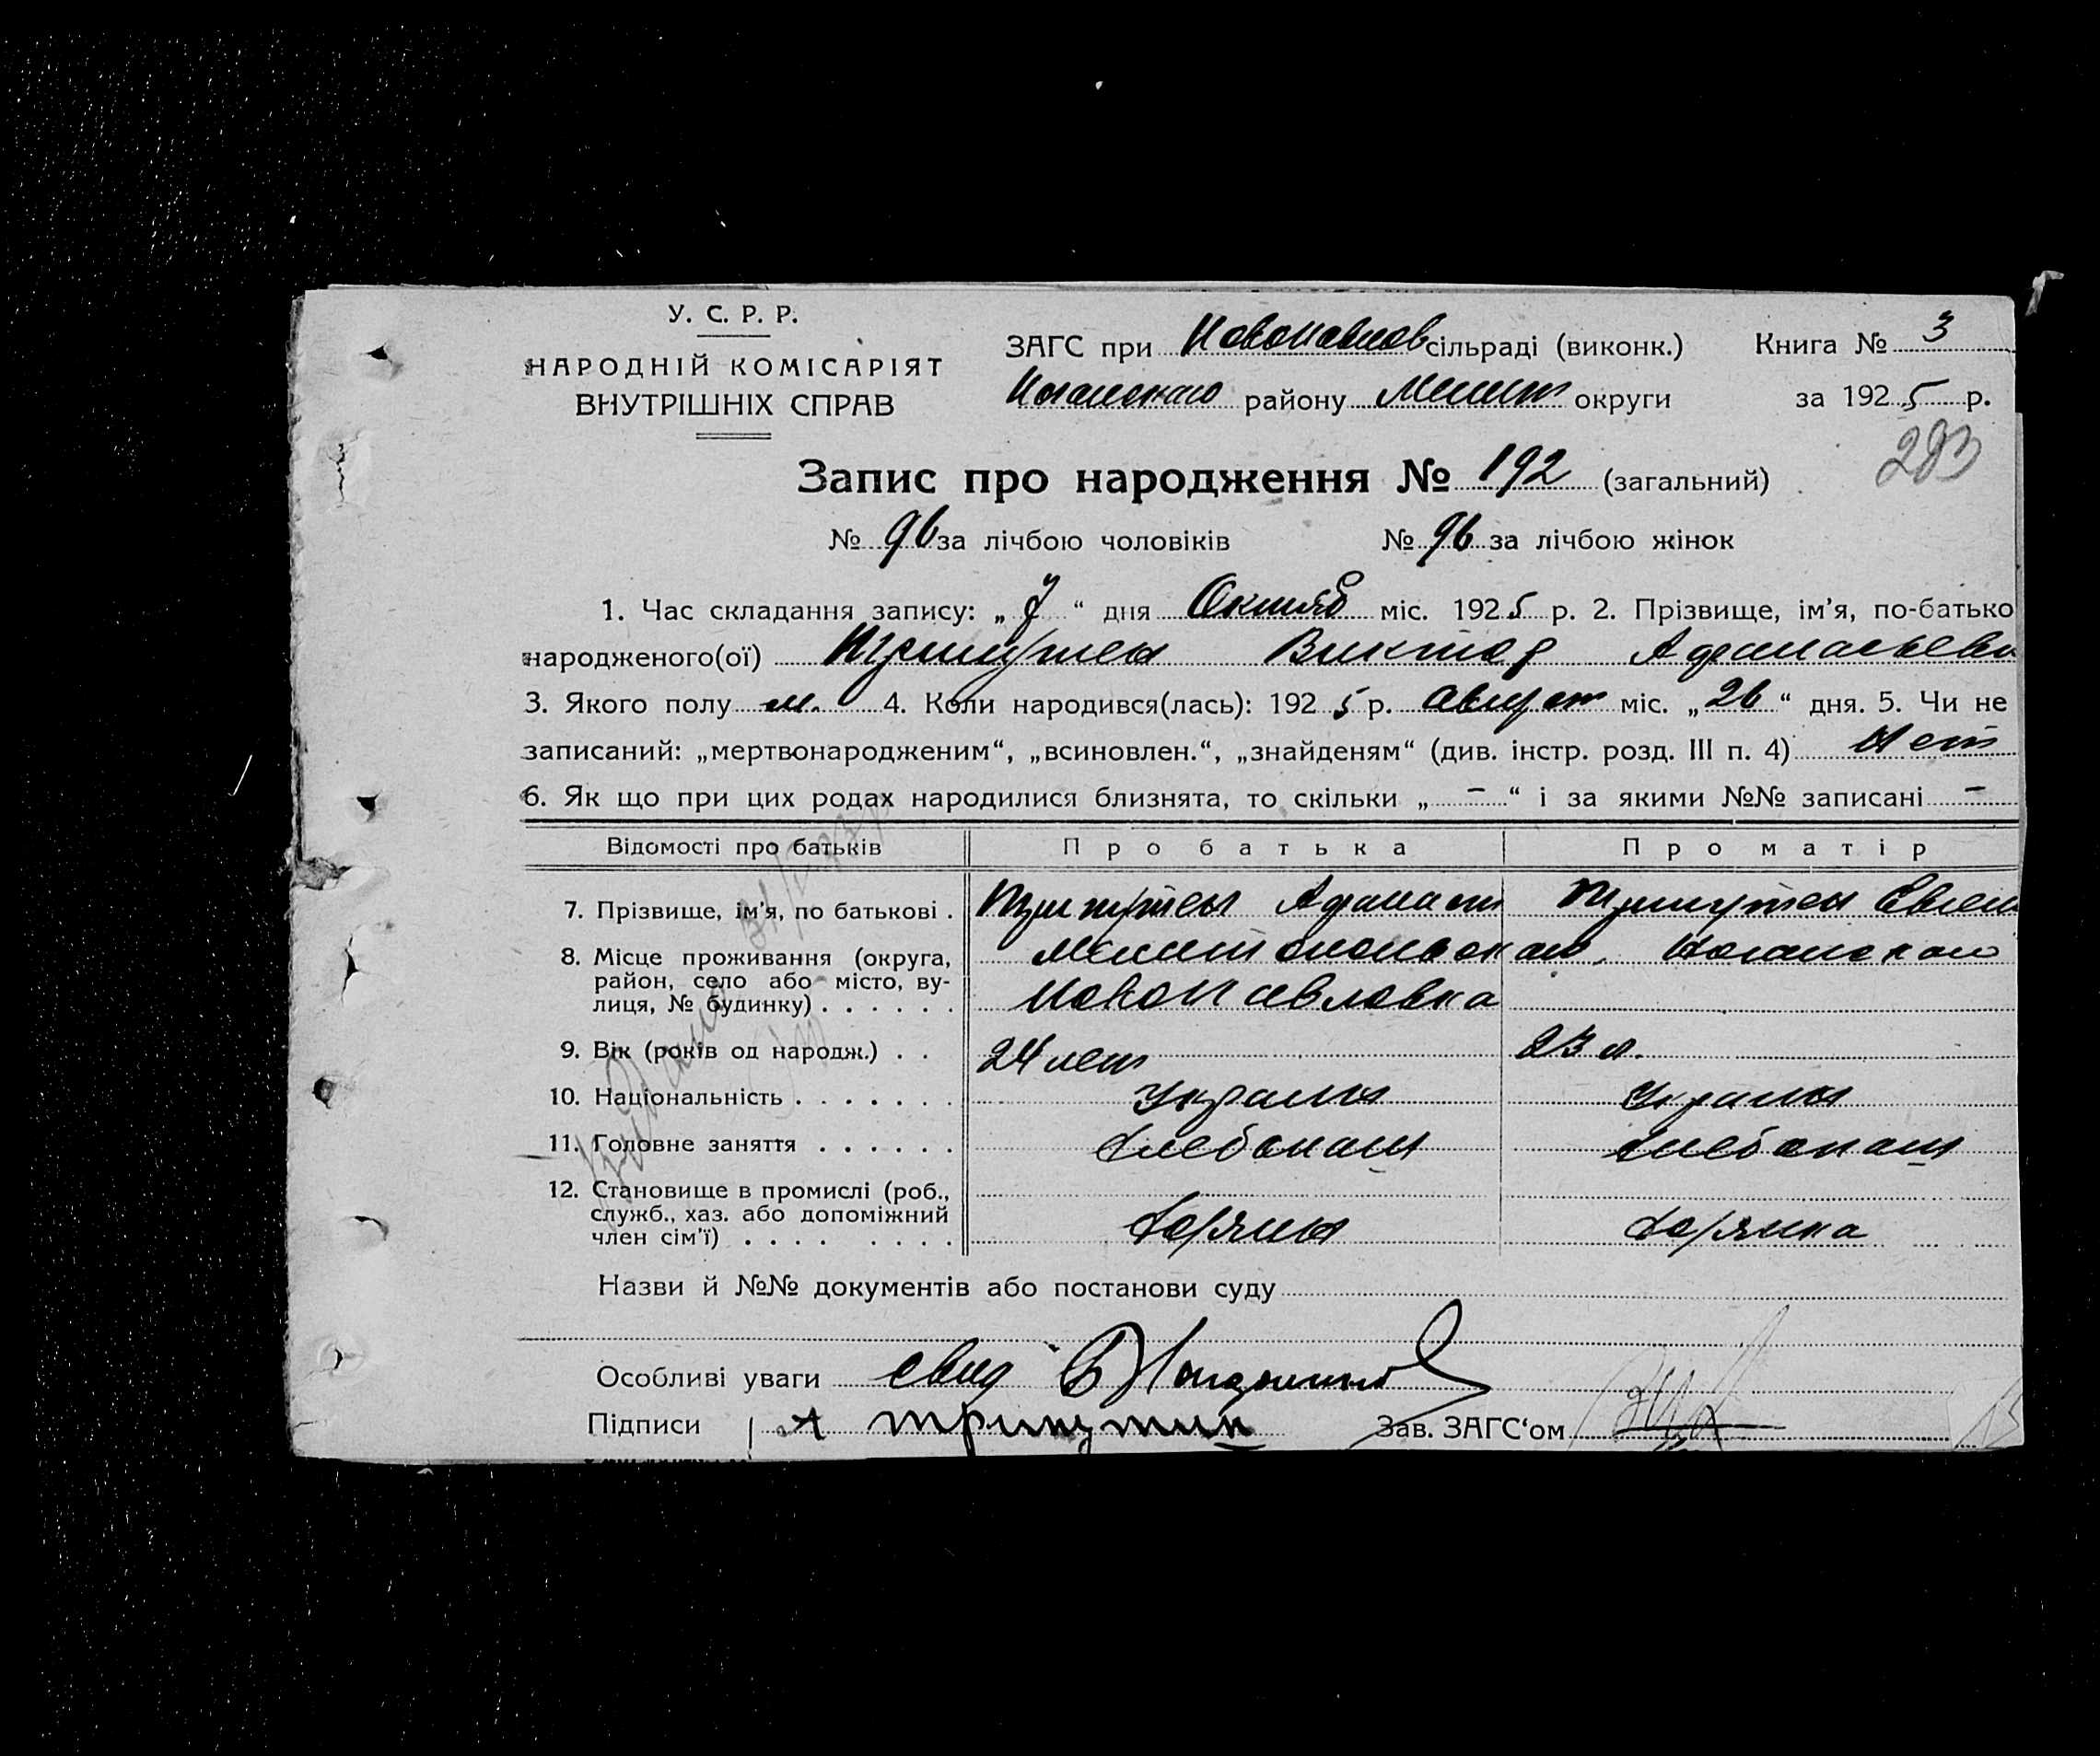 У. С. Р. Р.
НАРОДНІЙ КОМІСАРІЯТ
ВНУТРІШНІХ СПРАВ
ЗАГС при Новопавлов сільраді (виконк.) Книга № 3
району Мелит округи за 1925 р.
293
Запис про народження № 192 (загальний)
№ 96 за лічбою чоловіків № 96 за лічбою жінок
1. Час складання запису: „ 7 “ дня Октяб міс. 1925 р. 2. Прізвище, ім’я, по-батько
народженого(ої) Трипутень Виктор Афанасьеви
3. Якого полу м. 4. Коли народився(лась): 1925 р. Август міс. „ 26 “ дня. 5. Чи не
записаний: „мертвонародженим“, „всиновлен.“, „знайденям“ (див. інстр. розд. III п. 4) Нет
6. Як що при цих родах народилися близнята, то скільки „ – “ і за якими №№ записані –
Відомості про батьків Про батька Про матір
7. Прізвище, ім’я, по батькові . Трипутень Афанаст Трипутень
8. Місце проживання (округа,
район, село або місто, ву-
лиця, № будинку) . . . . . . Новопавловка
9. Вік (років од народж.) . . 24 лет 23 л.
10. Національність . . . . . . . Украин Украин
11. Головне заняття . . . . . . Хлебопаш Хлебопаш
12. Становище в промислі (роб.,
служб., хаз. або допоміжний
член сім’ї) . . . . . . . . Хозяин Хозяйка
Назви й №№ документів або постанови суду
Особливі уваги свид
Підписи Зав. ЗАГС‘ом